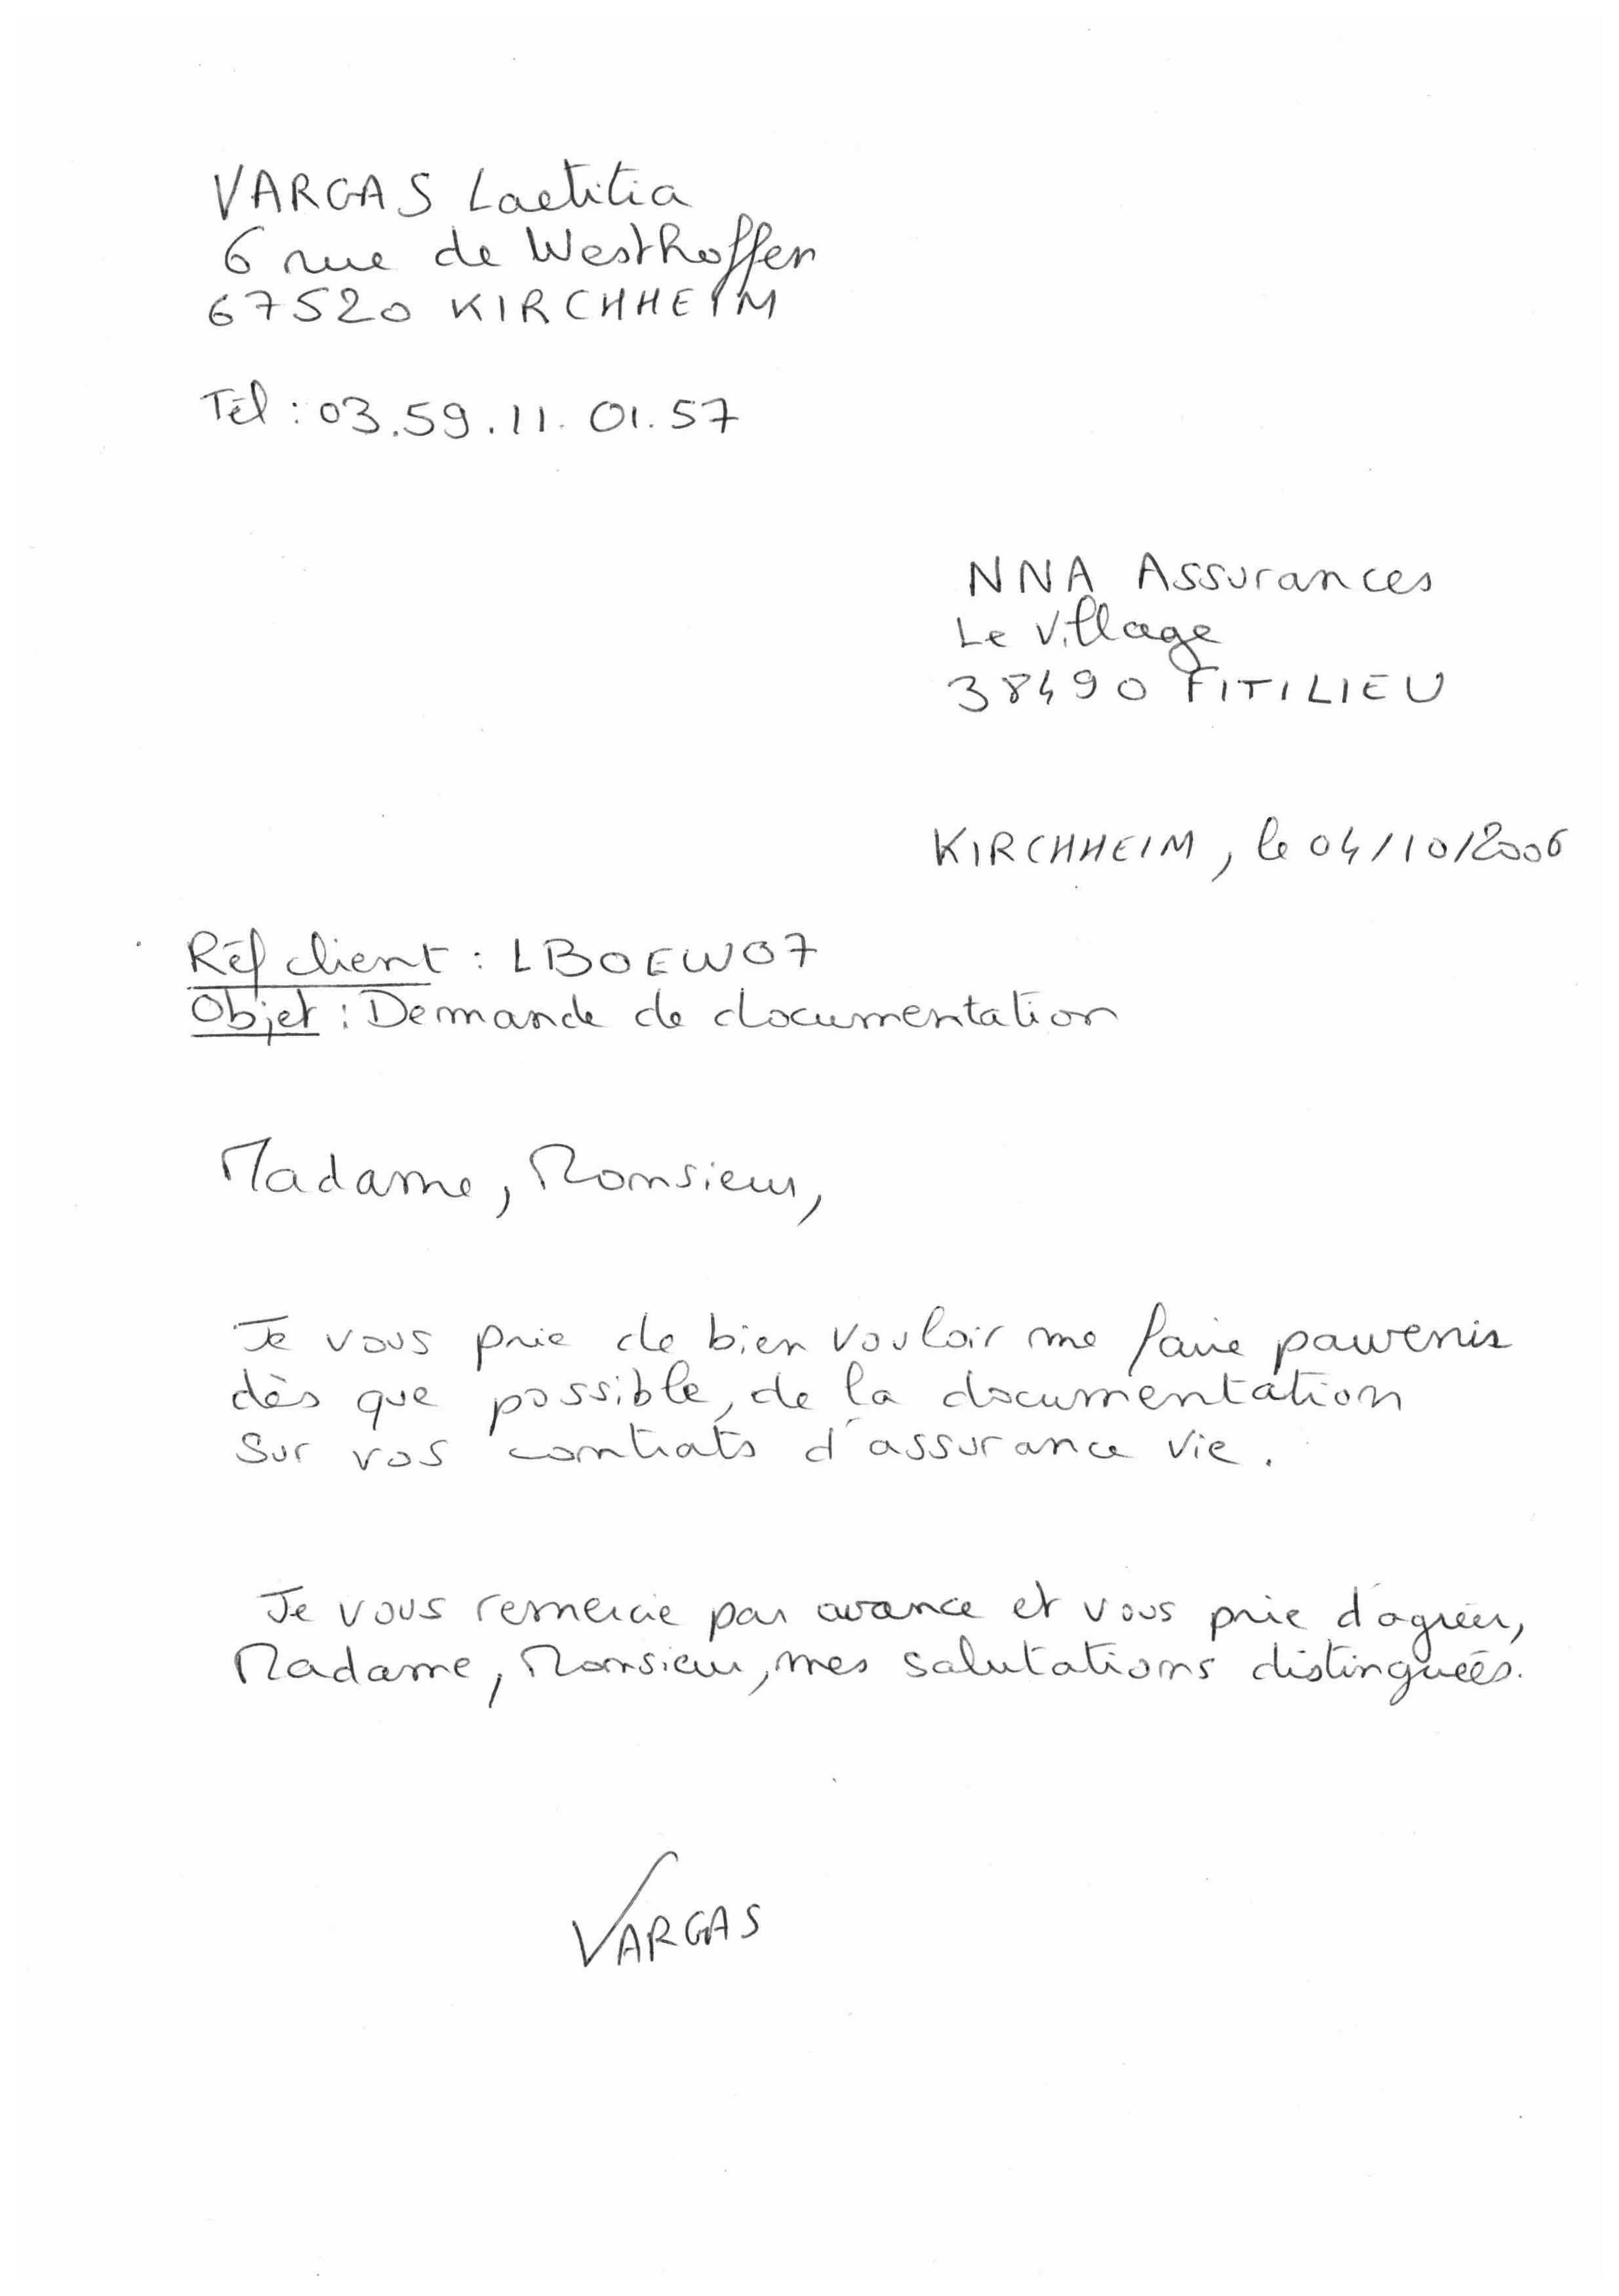 VARGAS Laetitia
6 rue de Westhoffen
67520 KIRCHHEIM
Tél : 03.59.11.01.57
NNA Assurances
Le Village
38490 FITILIEU
KIRCHHEIM, le 04/10/2006
Réf client : LBOEW07
Objet : Demande de documentation
Madame, Monsieur,
Je vous prie de bien vouloir me faire parvenir
dès que possible, de la documentation
sur vos contrats d'assurance vie.
Je vous remercie par avance et vous prie d'agréer,
Madame, Monsieur, mes salutations distinguées.
VARGAS